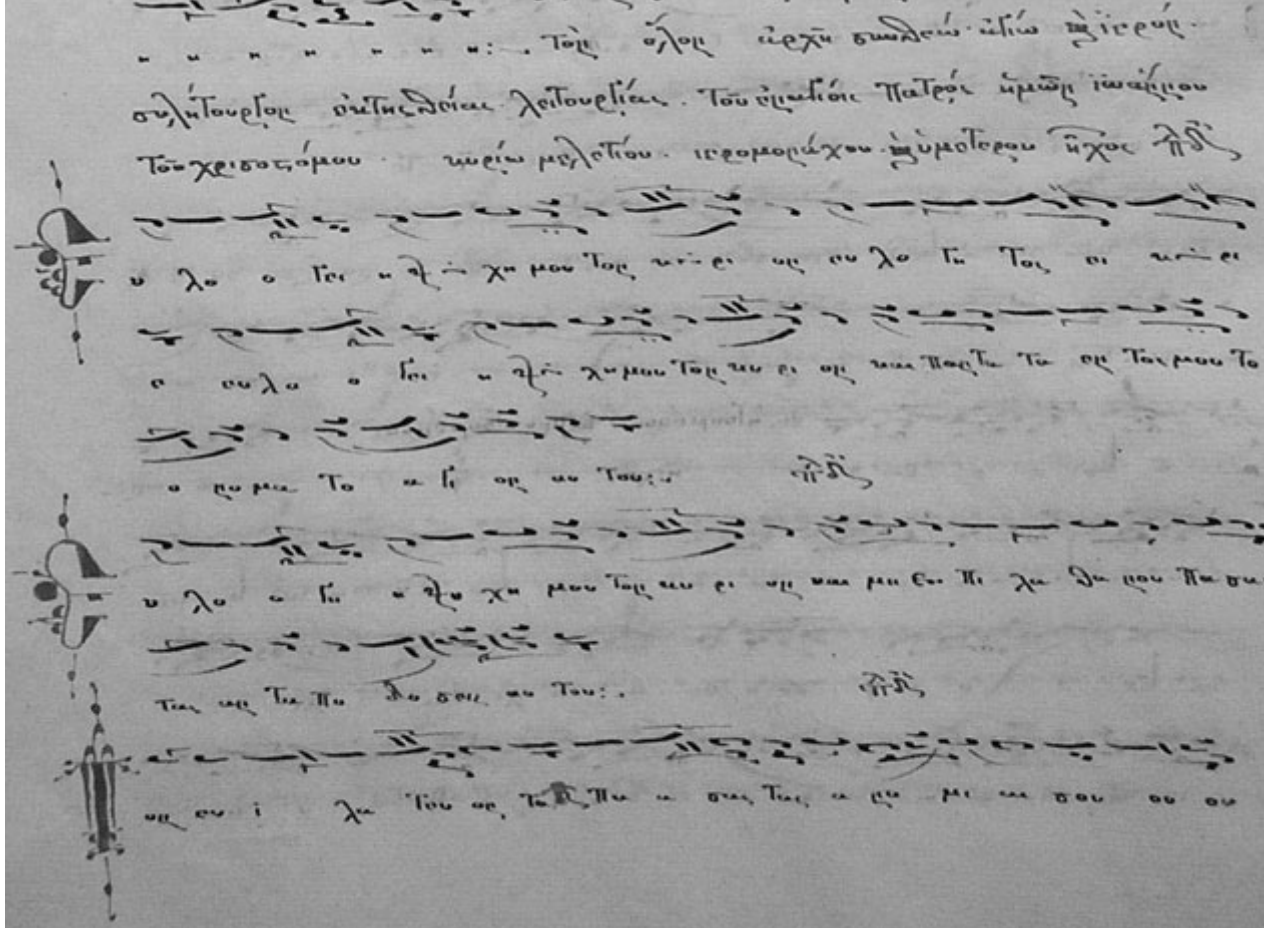 η η η η η η :. Τον όλον αρχή συν Θεώ αγίω των ιερών
συλλητουργον εκ της θείας λειτουργίας. Του εν αγίοις Πατρός ημών ιωάννου
Του χρισοστόμου. κυρίω μελετίου. ιερομονάχου ήχος
υ λο ο γει η ψυ χη μου τον κυ ρι ον ευ λο γη τος ει κυ ρι
ε ευ λο ο γει η ψυ χη μου τον κυ ρι ον και παντα τα εν τος μου το
ο νο μα το α γι ον αυ του :.
υ λο ο γει η ψυ χη μου τον κυ ρι ον και μη επι λα θα νου πα σα
τας αν τα πο δο σεις αυ του :.
ον ευ ι λα τευ ον τα πα α σας τας α νο μι αι σου ου ου